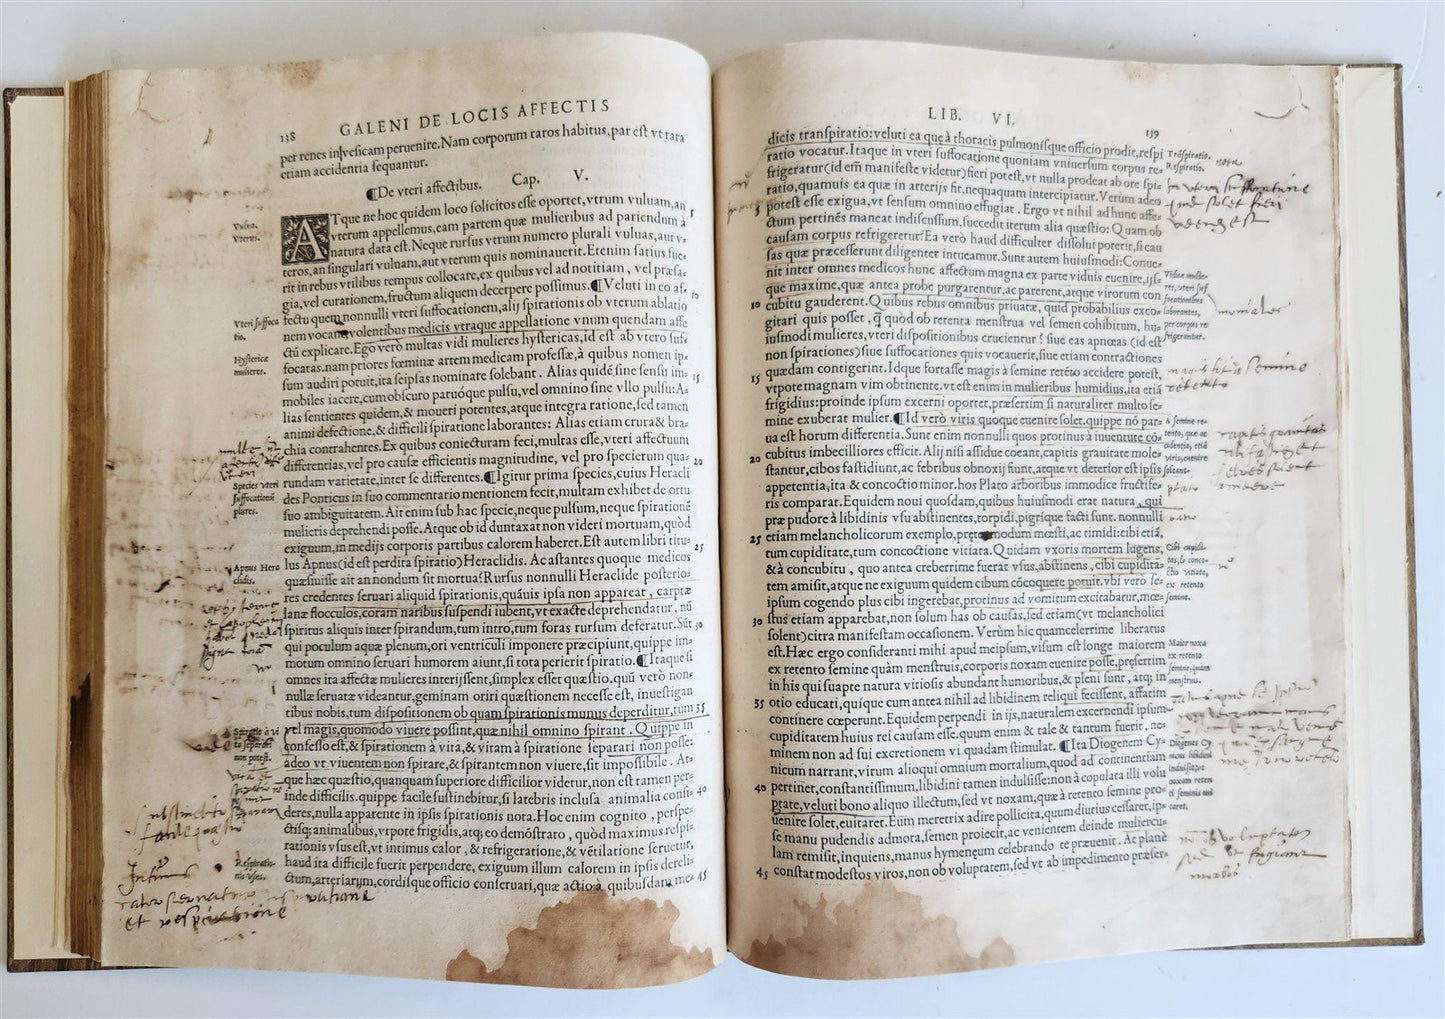 138 GALENI DE LOCIS AFFECTIS
per renes in vesicam peruenire. Nam corporum raros habitus, par est vt rara
etiam accidentia sequantur.
¶De vteri affectibus. Cap. V.
ATque ne hoc quidem loco solicitos esse oportet, vtrum vuluam, an
vterum appellemus, eam partem quæ mulieribus ad pariendum à
natura data est. Neque rursus vtrum numero plurali vuluas, aut v-
teros, an singulari vuluam, aut vterum quis nominauerit. Etenim satius fue-
rit in rebus vtilibus tempus collocare, ex quibus vel ad notitiam, vel præsa-
gia, vel curationem, fructum aliquem decerpere possimus. ¶Veluti in eo af-
fectu quem nonnulli vteri suffocationem, alij spirationis ob vterum ablatio
nem vocant, volentibus medicis vtraque appellatione vnum quendam affe
ctũ explicare. Ego verò multas vidi mulieres hystericas, id est ab vtero suf-
focatas. nam priores fœminæ artem medicam professæ, à quibus nomen ip-
sum audiri potuit, ita seipsas nominare solebant. Alias quidẽ sine sensu im-
mobiles iacere, cum obscuro paruóque pulsu, vel omnino sine vllo pulsu: A-
lias sentientes quidem, & moueri potentes, atque integra ratione, sed tamen
animi defectione, & difficili spiratione laborantes: Alias etiam crura & bra-
chia contrahentes. Ex quibus coniecturam feci, multas esse, vteri affectuum
differentias, vel pro causæ efficientis magnitudine, vel pro specierum qua-
rundam varietate, inter se differentes. ¶Igitur prima species, cuius Heracli
des Ponticus in suo commentario mentionem fecit, multam exhibet de ortu
suo ambiguitatem. Ait enim sub hac specie, neque pulsum, neque spirationẽ
mulieris deprehendi posse. Atque ob id duntaxat non videri mortuam, quòd
exiguum, in medijs corporis partibus calorem haberet. Est autem libri titu-
lus Apnus (id est perdita spiratio) Heraclidis. Ac astantes quoque medicos
quæsiuisse ait an nondum sit mortua? Rursus nonnulli Heraclide posterio-
res credentes seruari aliquid spirationis, quáuis ipsa non appareat, carptæ
lanæ flocculos, coram naribus suspendi iubent, vt exacte deprehendatur, nũ
spiritus aliquis inter spirandum, tum intro, tum foras rursum deferatur. Sũt
qui poculum aquæ plenum, ori ventriculi imponere præcipiunt, quippe im-
motum omnino seruari humorem aiunt, si tota perierit spiratio. ¶Itaque si
omnes ita affectæ mulieres interijssent, simplex esset quæstio. quũ verò non-
nullæ seruatæ videantur, geminam oriri quæstionem necesse est, inuestigan
tibus nobis, tum dispositionem ob quam spirationis munus deperditur, tum
vel magis, quomodo viuere possint, quæ nihil omnino spirant. Quippe in
confesso est, & spirationem à vita, & vitam à spiratione separari non posse:
adeo vt viuentem non spirare, & spirantem non viuere, sit impossibile. At-
que hæc quæstio, quanquam superiore difficilior videtur, non est tamen per-
inde difficilis. quippe facile sustinebitur, si latebris inclusa animalia consi-
deres, nulla apparente in ipsis spirationis nota. Hoc enim cognito, perspe-
ctisq; animalibus, vtpote frigidis, atq; eo demõstrato, quòd maximus respi-
rationis vsus est, vt intimus calor, & refrigeratione, & vẽtilatione seruetur,
haud ita difficile fuerit perpendere, exiguum illum calorem in ipsis dereli-
ctum, arteriarum, cordisque officio conseruari, quæ actio à quibusdam me-
5
10
15
20
25
30
35
40
45
Vulua.
Vterus.
Vteri suffoca
tio.
Hystericæ
mulieres.
Species vteri
suffocationũ
plures.
Apnus Hera
clidis.
Spiratio à vi
ta separari
non potest.
Respiratio-
nis vsus.
LIB. VI. 139
dicis transpiratio: veluti ea quę à thoracis pulmonisque officio prodit, respi
ratio vocatur. Itaque in vteri suffocatione quoniam vniuersum corpus re-
frigeratur (id em̃ manifeste videtur) fieri potest, vt nulla prodeat ab ore spi-
ratio, quamuis ea quæ in arterijs fit, nequaquam intercipiatur. Verùm adeo
potest esse exigua, vt sensum omnino effugiat. Ergo vt nihil ad hunc affe-
ctum pertinẽs maneat indiscussum, succedit iterum alia quæstio: Quam ob
causam corpus refrigeretur? Ea verò haud difficulter dissolui poterit, si cau
sas quæ præcesserunt diligenter intueamur. Sunt autem huiusmodi: Conue-
nit inter omnes medicos hunc affectum magna ex parte viduis euenire, ijs-
que maxime, quæ antea probe purgarentur, ac parerent, atque virorum con
cubitu gauderent. Quibus rebus omnibus priuatæ, quid probabilius exco-
gitari quis posset, q̃ quòd ob retenta menstrua vel semen cohibitum, hu-
iusmodi mulieres, vteri dispositionibus crucientur? siue eas apnœas (id est
non spirationes) siue suffocationes quis vocauerit, siue etiam contractiones
quædam contigerint. Idque fortasse magis à semine retẽto accidere potest,
vtpote magnam vim obtinente. vt est enim in mulieribus humidius, ita etiã
frigidius: proinde ipsum excerni oportet, præsertim si naturaliter multo se-
mine exuberat mulier. ¶Id verò viris quoque euenire solet. quippe nõ par-
ua est horum differentia. Sunt enim nonnulli quos protinus à iuuentute cõ-
cubitus imbecilliores efficit. Alij nisi assidue coeant, capitis grauitate mole-
stantur, cibos fastidiunt, ac febribus obnoxij fiunt, atque vt deterior est ipsis
appetentia, ita & concoctio minor. hos Plato arboribus immodice fructife-
ris comparat. Equidem noui quosdam, quibus huiusmodi erat natura, qui
præ pudore à libidinis vsu abstinentes, torpidi, pigrique facti sunt. nonnulli
etiam melancholicorum exemplo, præter modum mœsti, ac timidi: cibi etiã,
tum cupiditate, tum concoctione vitiata. Quidam vxoris mortem lugens,
& à concubitu, quo antea creberrime fuerat vsus, abstinens, cibi cupidita-
tem amisit, atque ne exiguum quidem cibum cõcoquere potuit. vbi verò se-
ipsum cogendo plus cibi ingerebat, protinus ad vomitum excitabatur, mœ-
stus etiam apparebat, non solum has ob causas, sed etiam (vt melancholici
solent) citra manifestam occasionem. Verùm hic quamcelerrime liberatus
est. Hæc ergo consideranti mihi apud meipsum, visum est longe maiorem
ex retento semine quàm menstruis, corporis noxam euenire posse, præsertim
in his qui suapte natura vitiosis abundant humoribus, & pleni sunt, atq; in
otio educati, quique cum antea nihil ad libidinem reliqui fecissent, affatim
continere cœperunt. Equidem perpendi in ijs, naturalem excernendi ipsum
cupiditatem huius rei causam esse. quum enim & tale & tantum fuerit, ne-
minem non ad sui excretionem vi quadam stimulat. ¶Ita Diogenem Cy-
nicum narrant, virum alioqui omnium mortalium, quod ad continentiam
pertinet, constantissimum, libidini tamen indulsisse: non à copulata illi volu
ptate, veluti bono aliquo illectum, sed vt noxam, quæ à retento semine pro-
uenire solet, euitaret. Eum meretrix adire pollicita, quum diutius cessaret, ip-
se manu pudendis admota, semen proiecit, ac venientem deinde muliercu-
lam remisit, inquiens, manus hymenęum celebrando te præuenit. At planè
constat modestos viros, non ob voluptatem, sed vt ab impedimento præser-
5
10
15
20
25
30
35
40
45
Trãspiratio.
Respiratio.
Viduæ mulie-
res, vteri suf
focationibus
laborantes,
A semine re-
tento, quæ ac
cidentia, etiã
viris, euenire
soleant.
Cibi cupidi-
tas, & conco-
ctio vitiata,
ex retento
semine.
Maior noxa
ex retento
semine, quàm
menstruis.
Diogenes Cy
nicus libidini
indulsit, vt
noxam reten
ti seminis eui
taret.
nota
in vteri suffocatione
quid solet fieri
moniales
magis retento semine
Intimus
et respiratione